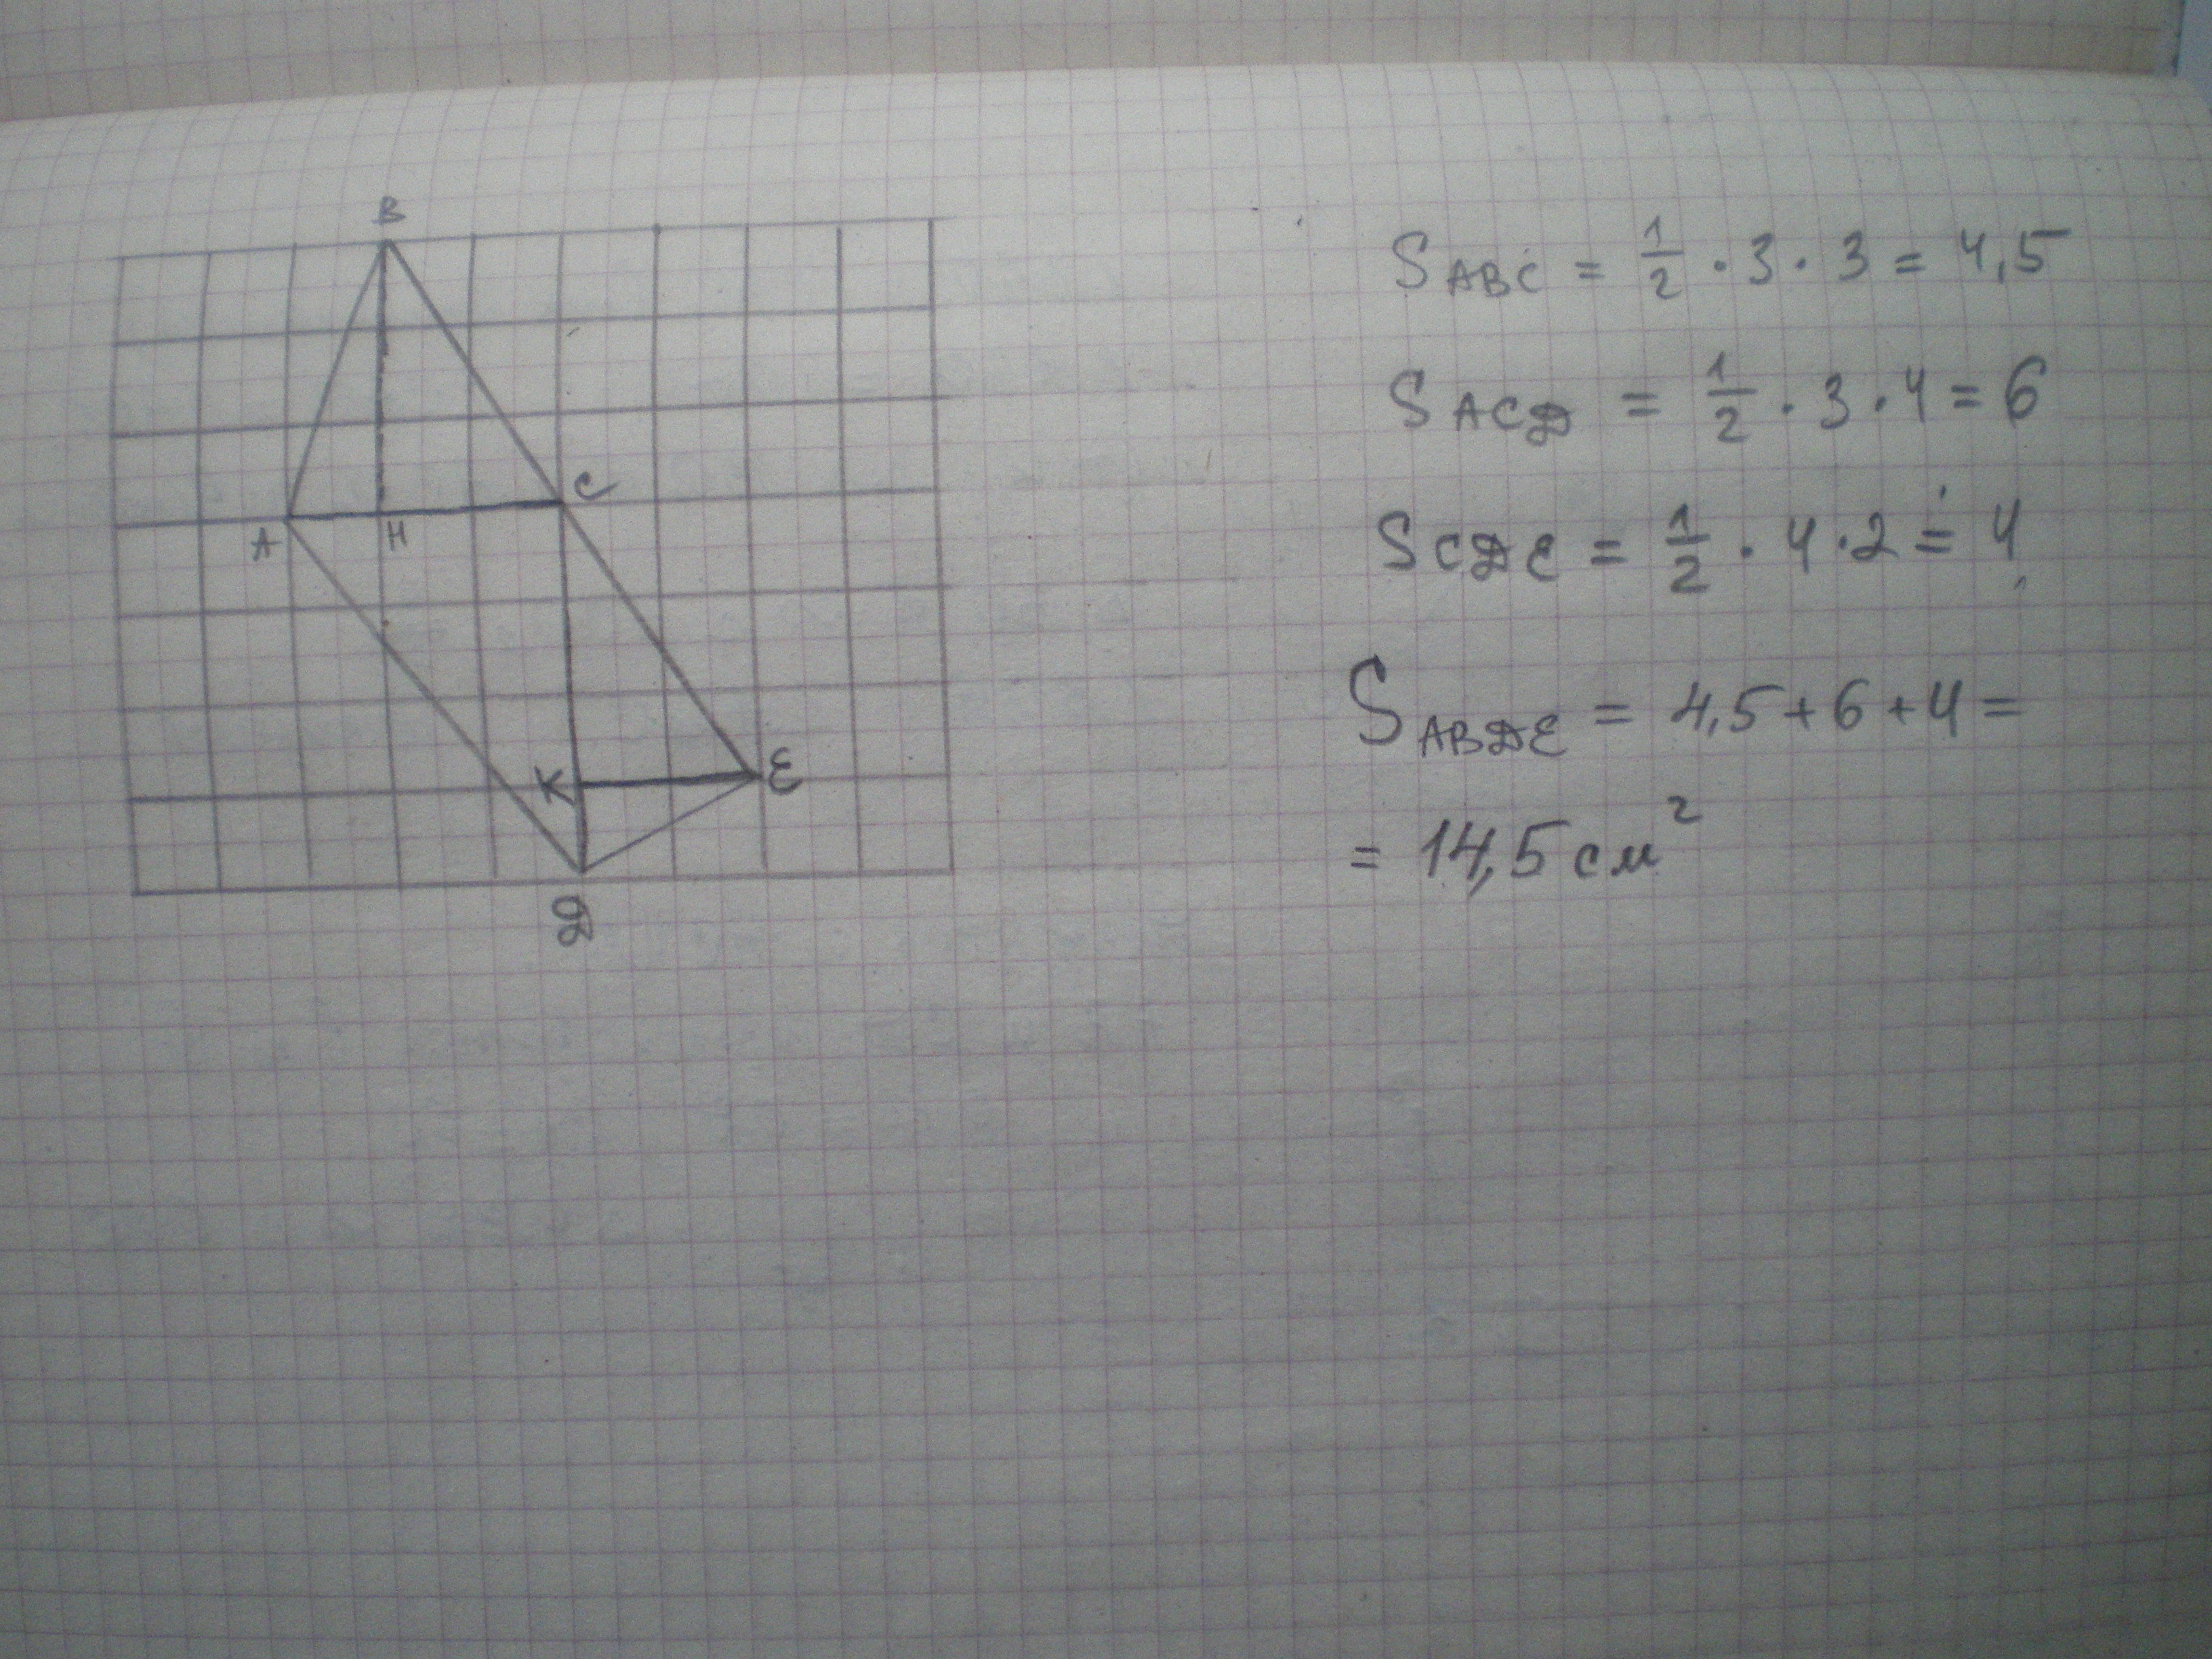 B
C
A
H
K
E
D
S ABC = 1/2 · 3 · 3 = 4,5
S ACD = 1/2 · 3 · 4 = 6
S CDE = 1/2 · 4 · 2 = 4
S ABDE = 4,5 + 6 + 4 =
= 14,5 см²